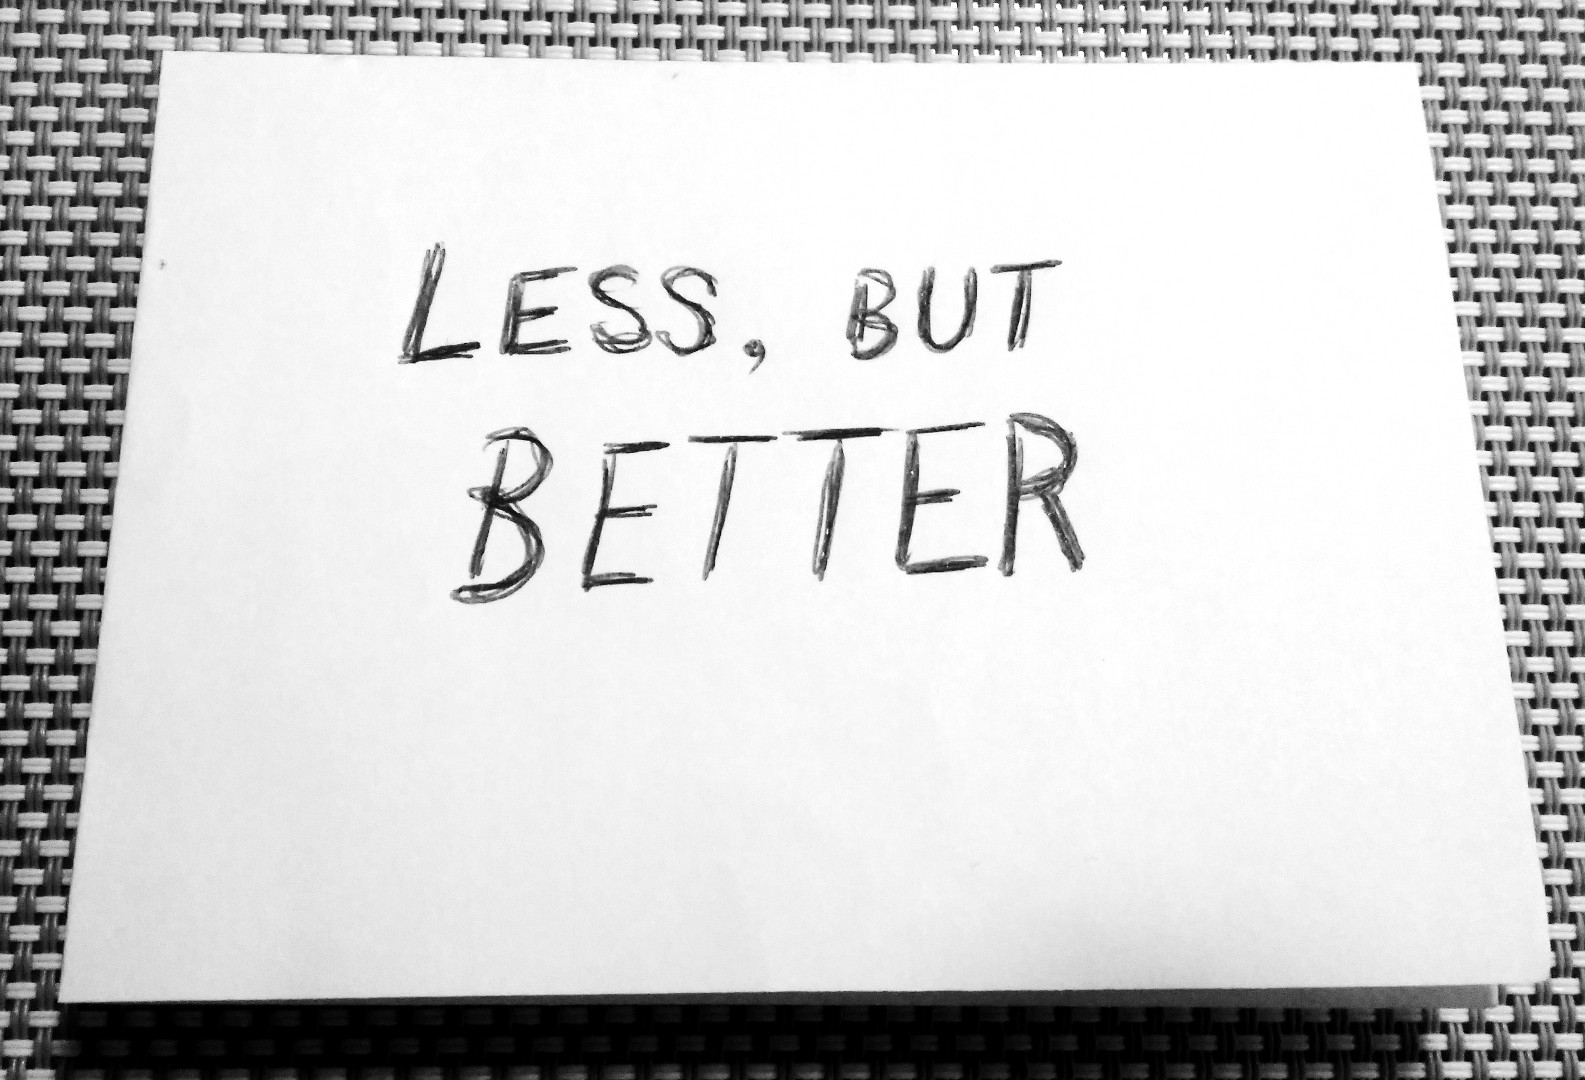 LESS, BUT
BETTER